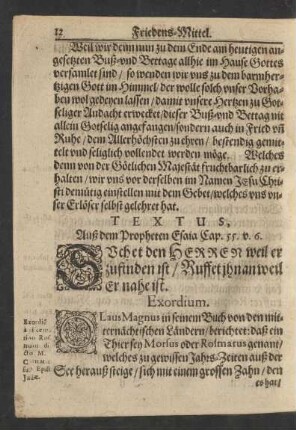 12 Friedens-Mittel.
Weil wir denn nun zu dem Ende am heutigen an-
gesetzten Buß-vnd Bettage allhie im Hause Gottes
versamlet sind / so wenden wir vns zu dem barmher-
tzigen Gott im Himmel der wolle solch vnser Vorha-
ben wol gedeyen lassen / damit vnsere Hertzen zu Got-
seliger Andacht erwecket / dieser Buß-vnd Bettag nit
allein Gotselig angefangen / sondern auch in Fried vñ
Ruhe / dem Allerhöchsten zu ehren / bestendig gemit-
telt vnd seliglich vollendet werden möge. Welches
denn von der Götlichen Majestät fruchtbarlich zu er-
halten / wir vns vor derselben im Namen JEsu Chri-
sti demütig einstellen mit dem Gebet / welches vns vn-
ser Erlöser selbst gelehret hat.
TEXTUS,
Auß dem Propheten Esaia Cap. 55. v. 6.
SVchet den HERREN weil er
zufinden ist / Ruffet jhn an weil
Er nahe ist.
Exordium.
OLaus Magnus in seinem Buch von den mit-
ternächtischen Ländern / berichtet: daß ein
Thier sey Morsus oder Rosmarus genant /
welches zu gewissen Jahrs-Zeiten auß der
See herauß steige / sich mit einem grossen Zahn / den
es hat /